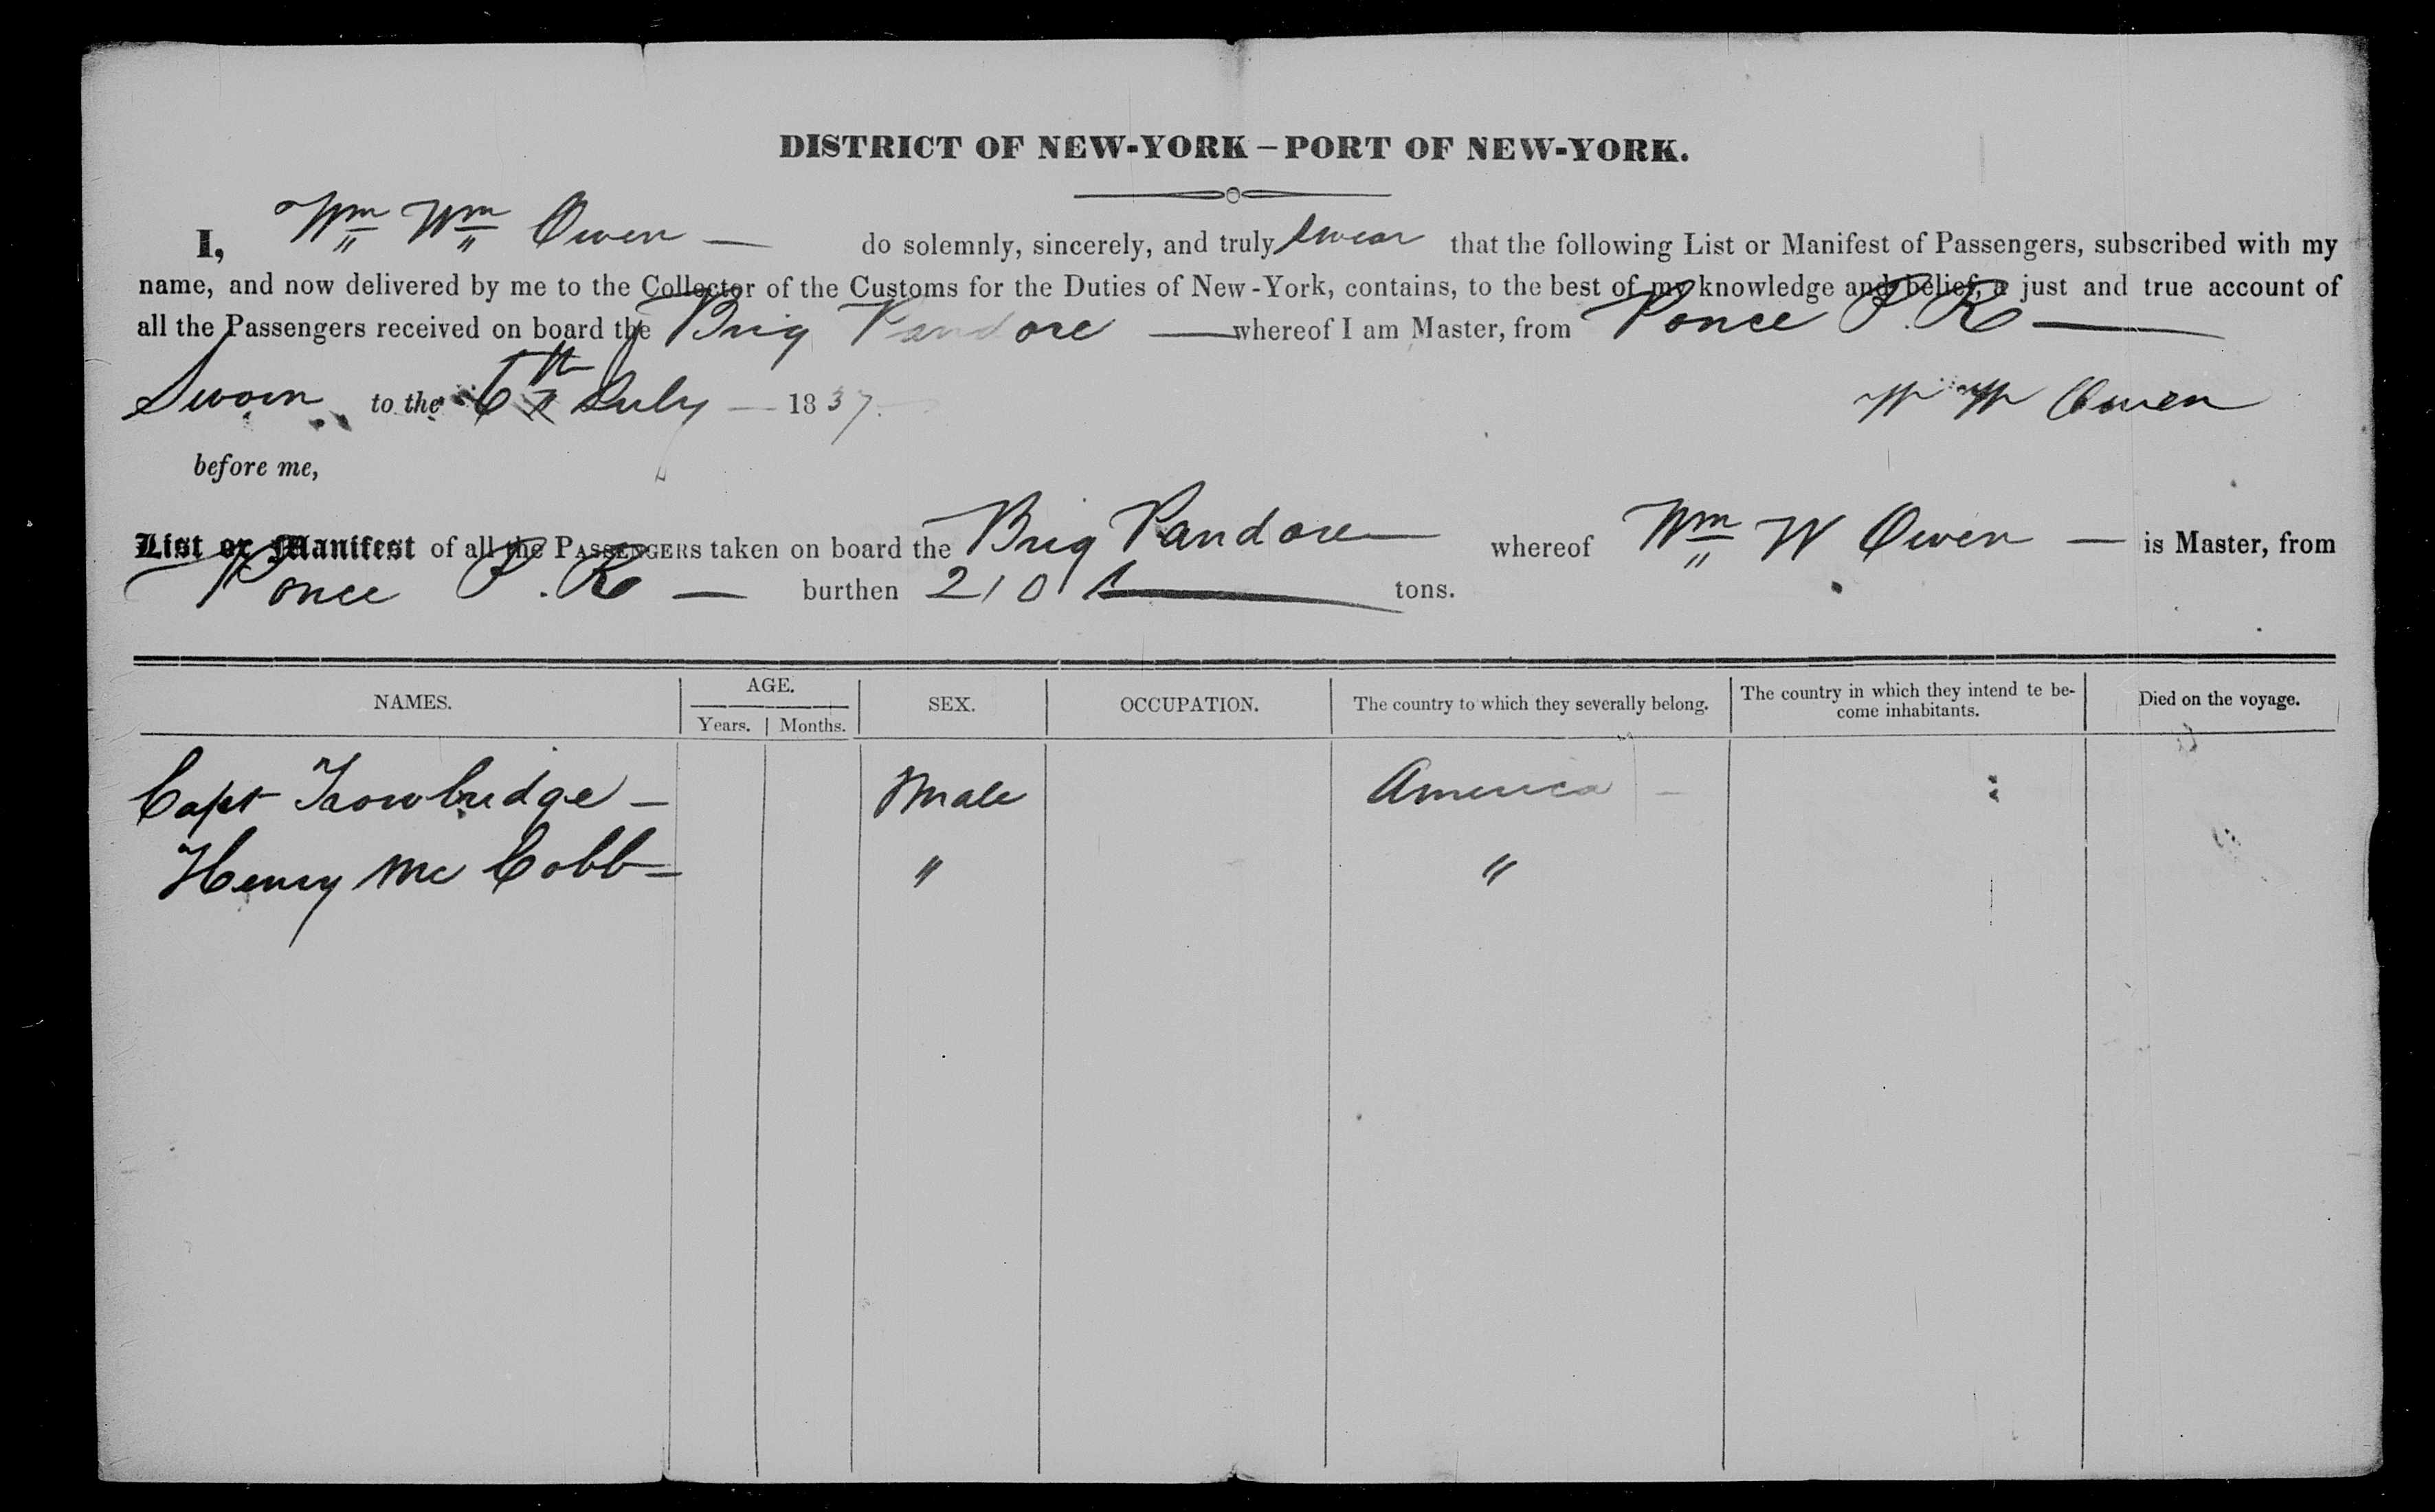 DISTRICT OF NEW-YORK – PORT OF NEW-YORK.
I, Wm Wm Owen — do solemnly, sincerely, and truly swear that the following List or Manifest of Passengers, subscribed with my
name, and now delivered by me to the Collector of the Customs for the Duties of New-York, contains, to the best of my knowledge and belief, a just and true account of
all the Passengers received on board the Brig Pandore — whereof I am Master, from Ponce P. R —
Sworn to the 6th July — 1837. W W Owen
before me,
List or Manifest of all the PASSENGERS taken on board the Brig Pandore — whereof Wm W Owen — is Master, from
Ponce P. R — burthen 210 tons.
NAMES. AGE. Years. Months. SEX. OCCUPATION. The country to which they severally belong. The country in which they intend te be-
come inhabitants. Died on the voyage.
Capt Trowbridge — Male America —
Henry Mc Cobb — " "